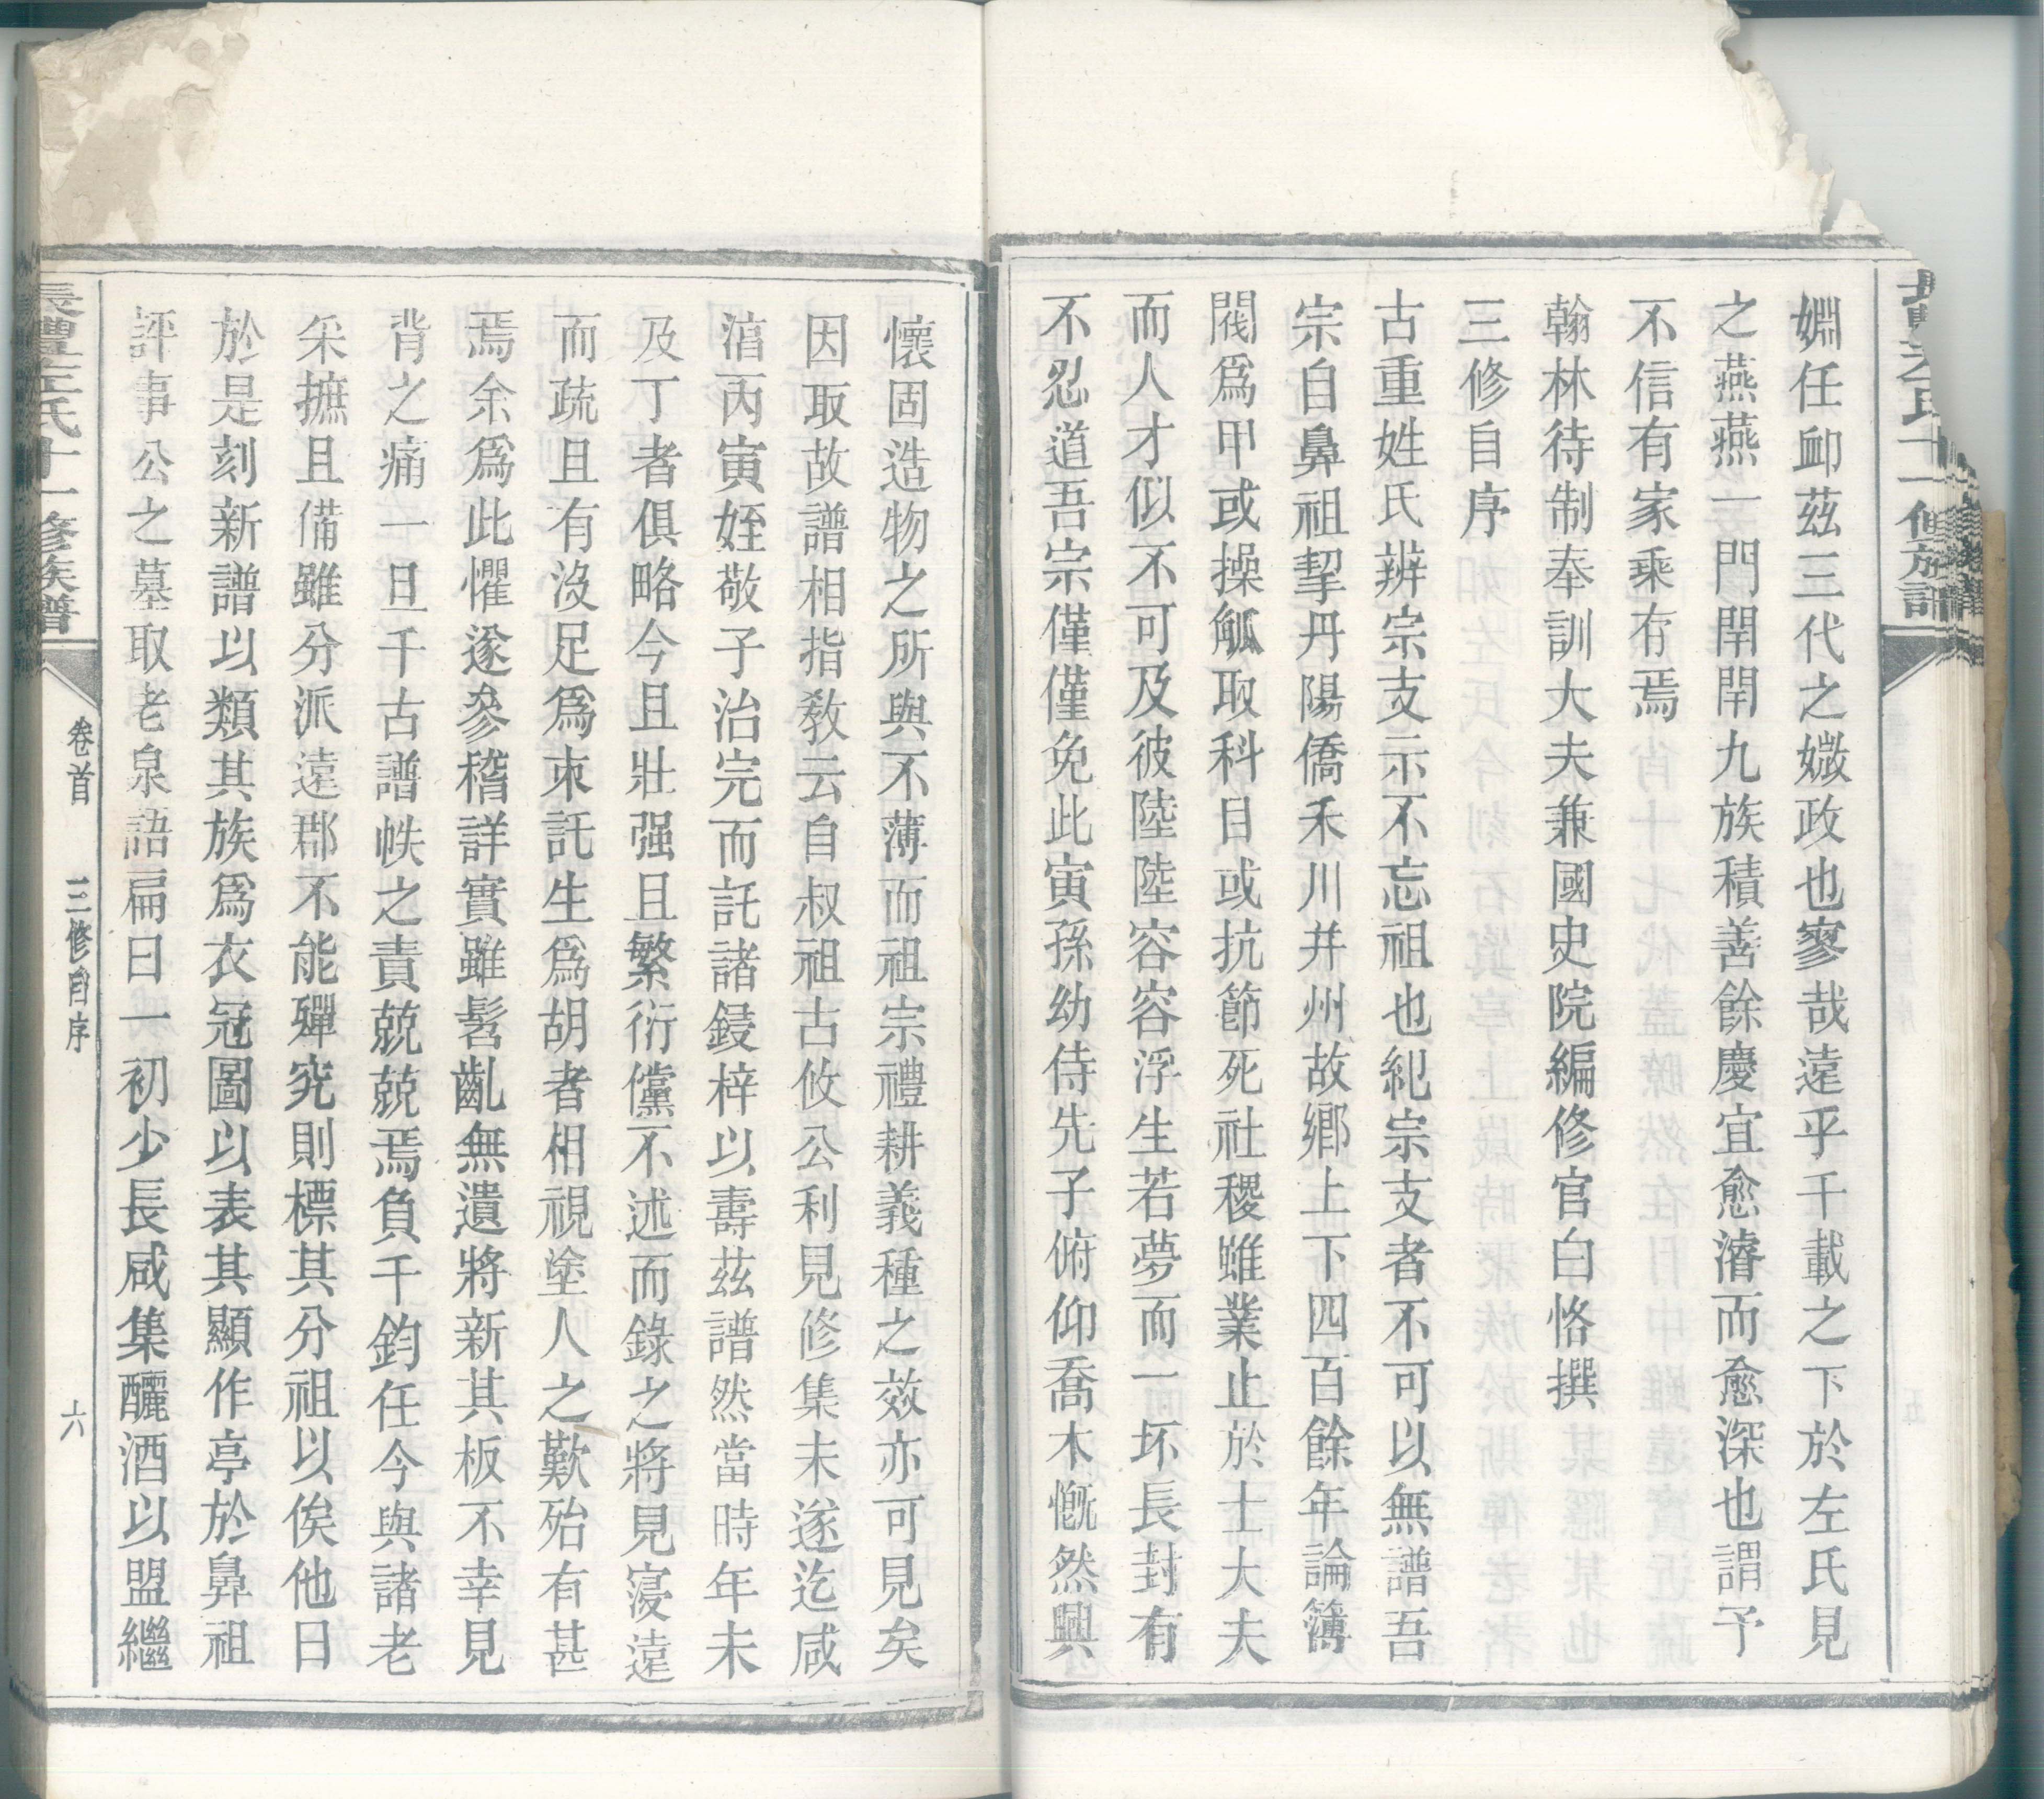 婣任卹茲三代之媺政也寥哉遠乎千載之下於左氏見
之燕燕一門閈閈九族積善餘慶宜愈濬而愈深也謂予
不信有家乘存焉
翰林待制奉訓大夫兼國史院編修官白恪撰
三修自序
古重姓氏辨宗支示不忘祖也紀宗支者不可以無譜吾
宗自鼻祖挈丹陽僑禾川并州故鄉上下四百餘年論簿
閥爲甲或操觚取科目或抗節死社稷雖業止於士大夫
而人才似不可及彼陸陸容容浮生若夢而一坏長封有
不忍道吾宗僅僅免此寅孫幼侍先子俯仰喬木慨然興
懷固造物之所與不薄而祖宗禮耕義種之效亦可見矣
因取故譜相指教云自叔祖古攸公利見修集未遂迄咸
淯丙寅姪敬子治完而託諸鋟梓以壽茲譜然當時年未
及丁者俱略今且壯强且繁衍儻不述而錄之將見寖遠
而疏且有沒足爲朿託生爲胡者相視塗人之歎殆有甚
焉余爲此懼遂參稽詳實雖髫齓無遺將新其板不幸見
背之痛一旦千古譜帙之責兢兢焉負千鈞任今與諸老
采摭且備雖分派遠郡不能殫究則標其分祖以俟他日
於是刻新譜以類其族爲衣冠圖以表其顯作亭於鼻祖
評事公之墓取老泉語扁曰一初少長咸集釃酒以盟繼
長澧左氏十一修族譜
卷首
三修自序
六